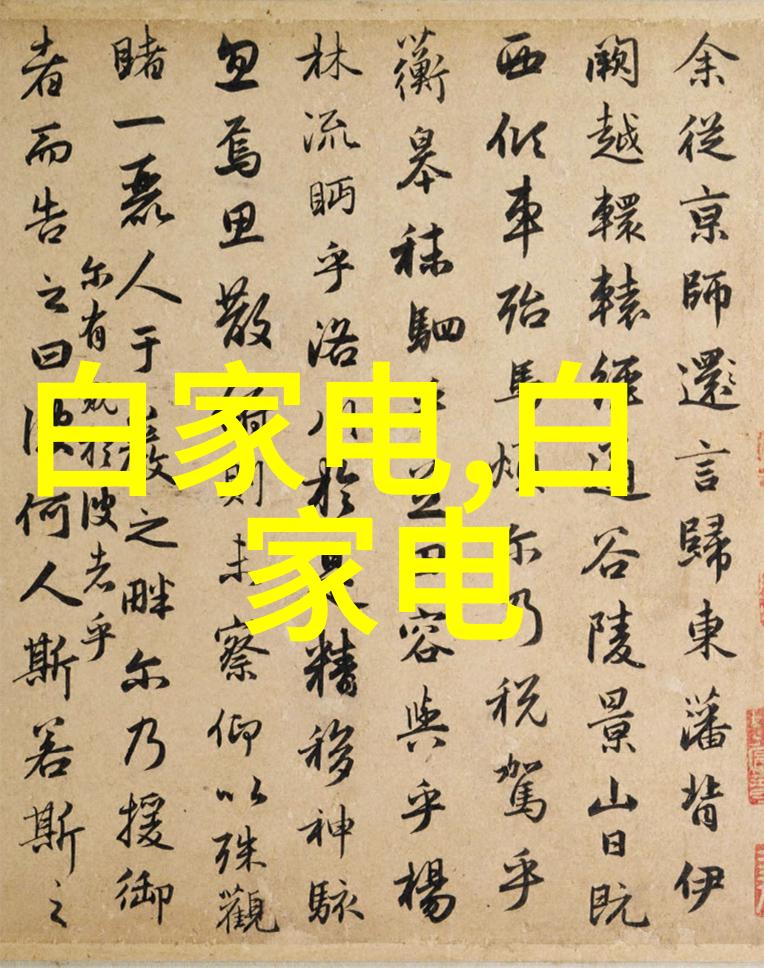 白家电,白
家电
余從京師還言歸東藩背伊
闕越轘轅經通谷陵景山日既
西傾車殆馬煩尔乃税駕乎
蘅皋秣駟容與乎楊
林流眄乎洛川於精移神駭
忽焉思散則未察仰以殊觀
睹一麗人于巖之畔尔乃援御
者而告之曰尔有於彼者乎
彼何人斯若斯之